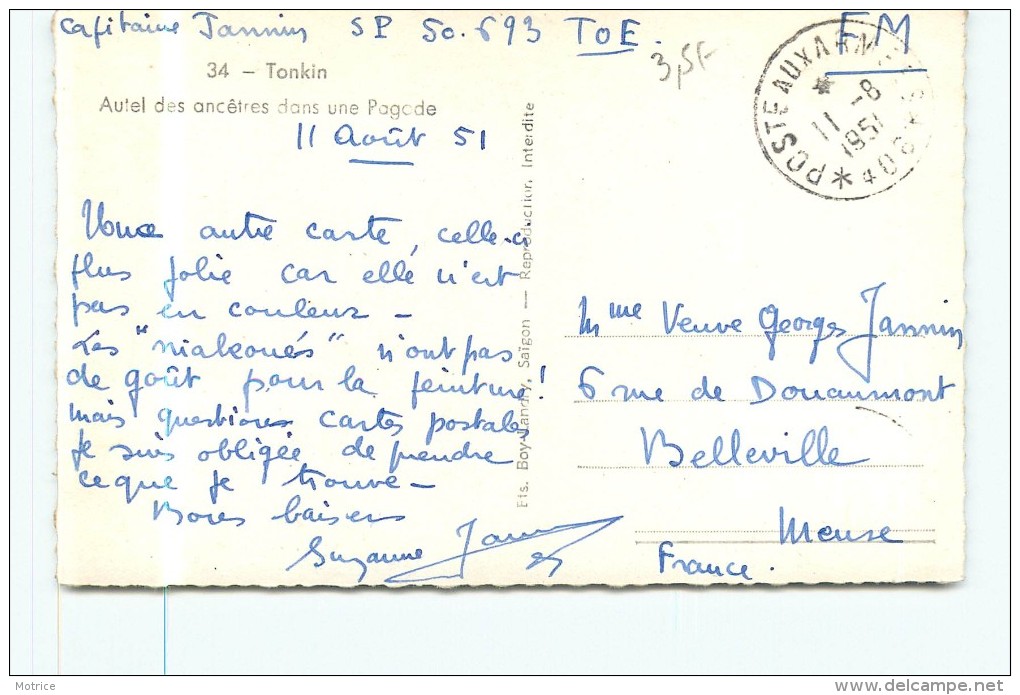 Capitaine Jannin SP 50.693 TOE.
FM
3,5F
34 – Tonkin
Autel des ancêtres dans une Pagode
POSTE AUX ARMÉES
11 -8
1951
11 Août 51
Une autre carte, celle-ci
plus jolie car elle n'est
pas en couleurs –
Les "niakoués" n'ont pas
de goût pour la peinture!
mais questions cartes postales
je suis obligée de prendre
ce que je trouve –
Bons baisers
Suzanne
Ets. Boy-Landry, Saïgon — Reproduction Interdite
Mme Veuve Georges Jannin
6 rue de Douaumont
Belleville
Meuse
France.
Motrice
http://www.delcampe.net